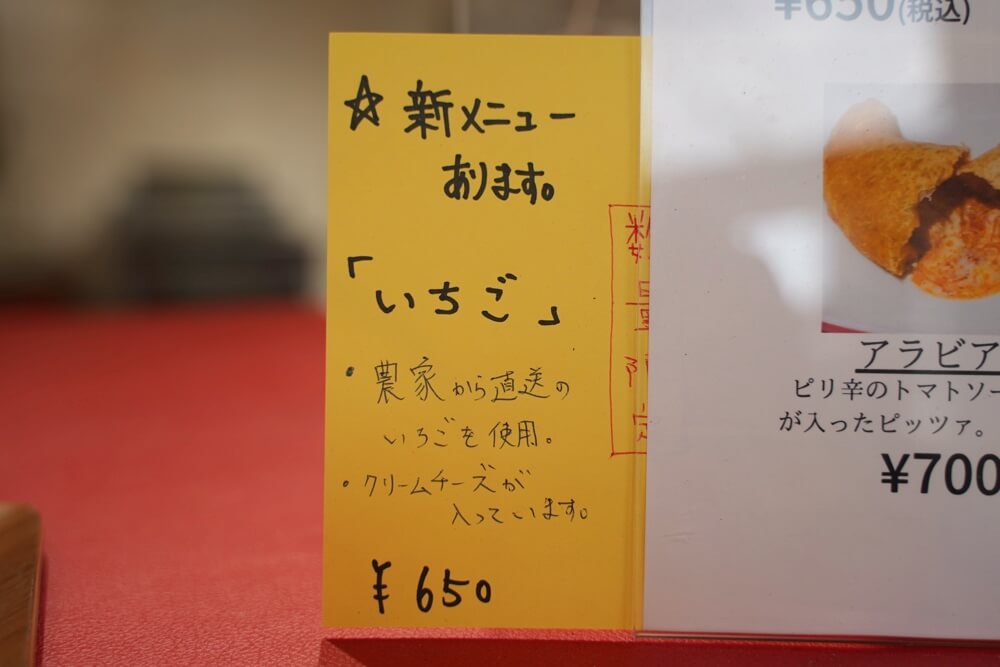 ☆新メニュー
あります。
「いちご」
・農家から直送の
いちごを使用。
・クリームチーズが
入っています。
¥650
数量限定
¥650(税込)
アラビア
ピリ辛のトマトソー
が入ったピッツァ。
¥700